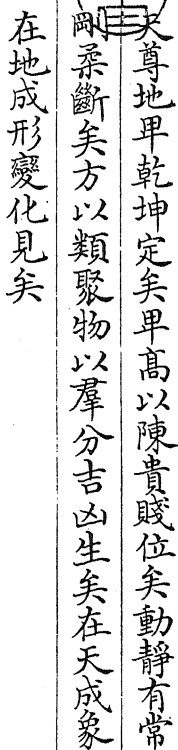 天尊地卑乾坤定矣卑高以陳貴賤位矣動靜有常
剛柔斷矣方以類聚物以羣分吉凶生矣在天成象
在地成形變化見矣